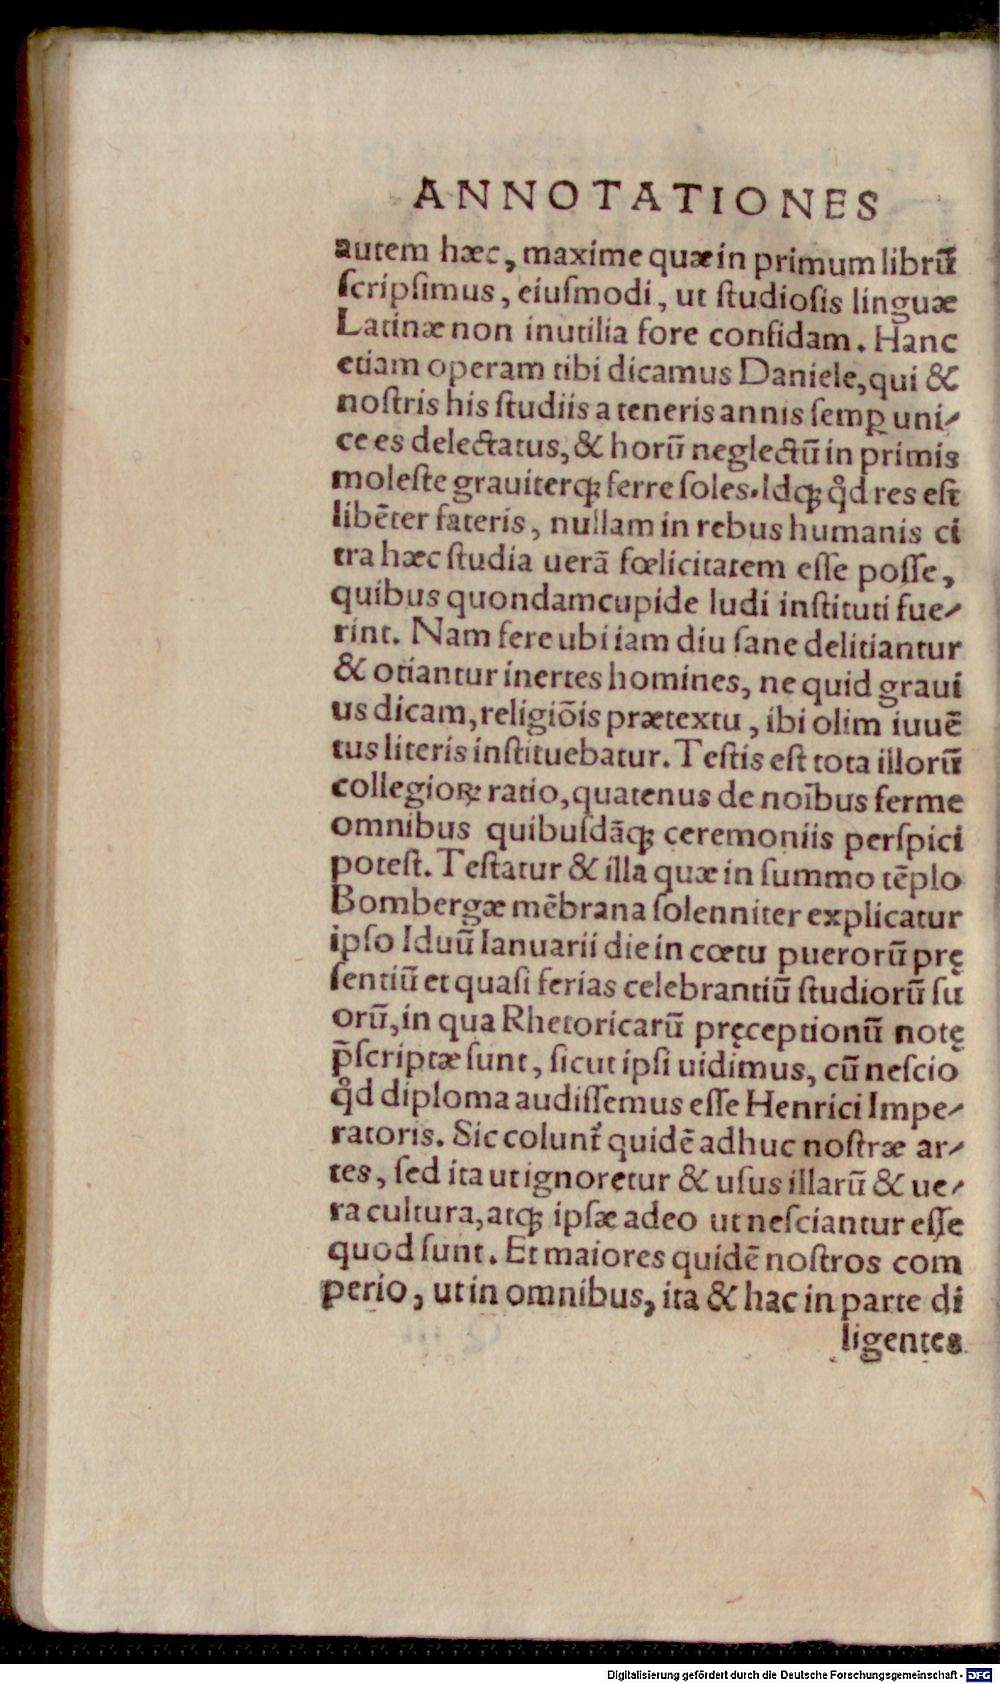 ANNOTATIONES
autem hæc, maxime quæ in primum librũ
ſcripſimus, eiuſmodi, ut ſtudioſis linguæ
Latinæ non inutilia fore confidam. Hanc
etiam operam tibi dicamus Daniele, qui &
noſtris his ſtudiis a teneris annis ſemꝑ uni-
ce es delectatus, & horũ neglectũ in primis
moleſte grauiterqꝫ ferre ſoles. Idqꝫ qd̉ res eſt
libẽter fateris, nullam in rebus humanis ci
tra hæc ſtudia uerã fœlicitatem eſſe poſſe,
quibus quondam cupide ludi inſtituti fue-
rint. Nam fere ubi iam diu ſane delitiantur
& otiantur inertes homines, ne quid graui
us dicam, religiõis prætextu, ibi olim iuuẽ
tus literis inſtituebatur. Teſtis eſt tota illorũ
collegioꝝ ratio, quatenus de noĩbus ferme
omnibus quibuſdãqꝫ ceremoniis perſpici
poteſt. Teſtatur & illa quæ in ſummo tẽplo
Bombergæ mẽbrana ſolenniter explicatur
ipſo Iduũ Ianuarii die in cœtu puerorũ prę
ſentiũ et quaſi ferias celebrantiũ ſtudiorũ ſu
orũ, in qua Rhetoricarũ pręceptionũ notę
p̃ſcriptæ ſunt, ſicut ipſi uidimus, cũ neſcio
qd̉ diploma audiſſemus eſſe Henrici Impe-
ratoris. Sic colunt᷑ quidẽ adhuc noſtræ ar-
tes, ſed ita ut ignoretur & uſus illarũ & ue-
ra cultura, atqꝫ ipſæ adeo ut neſciantur eſſe
quod ſunt. Et maiores quidẽ noſtros com
perio, ut in omnibus, ita & hac in parte di
ligentes
Digitalisierung gefördert durch die Deutsche Forschungsgemeinschaft - DFG